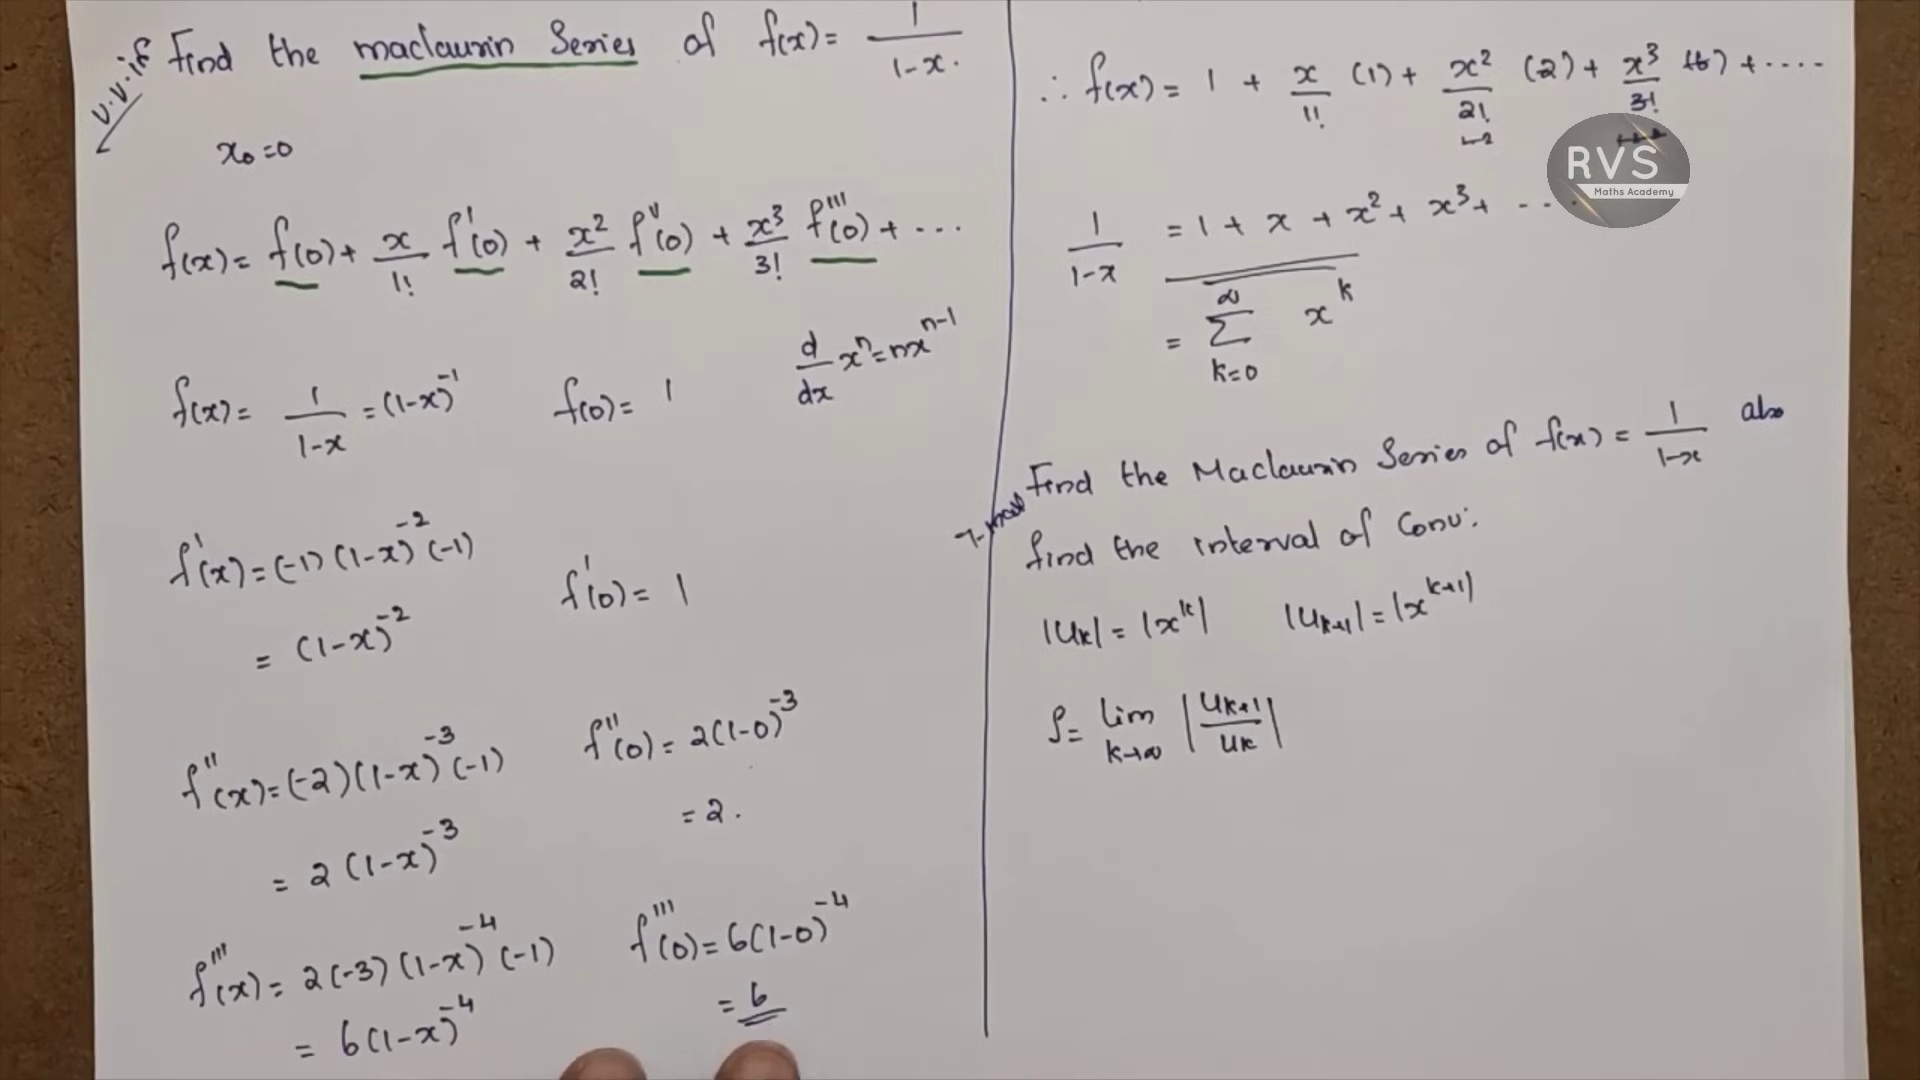 v.v.if
Find the maclaurin Series of f(x) = 1/(1-x).
x₀=0
f(x) = f(0) + x/1! f'(0) + x²/2! f''(0) + x³/3! f'''(0) + ...
d/dx xⁿ = nxⁿ⁻¹
f(x) = 1/(1-x) = (1-x)⁻¹ f(0) = 1
f'(x) = (-1)(1-x)⁻²(-1)
= (1-x)⁻² f'(0) = 1
f''(x) = (-2)(1-x)⁻³(-1) f''(0) = 2(1-0)⁻³
= 2(1-x)⁻³ = 2.
f'''(x) = 2(-3)(1-x)⁻⁴(-1) f'''(0) = 6(1-0)⁻⁴
= 6(1-x)⁻⁴ = 6
∴ f(x) = 1 + x/1! (1) + x²/2! (2) + x³/3! (6) + ....
1-2
RVS
Maths Academy
1/(1-x) = 1 + x + x² + x³ + ....
= ∑_{k=0}^{∞} x^k
7-mark
Find the Maclaurin Series of f(x) = 1/(1-x) also
find the interval of Conv:
|u_k| = |x^k| |u_{k+1}| = |x^{k+1}|
ρ = lim_{k→∞} |u_{k+1}/u_k|